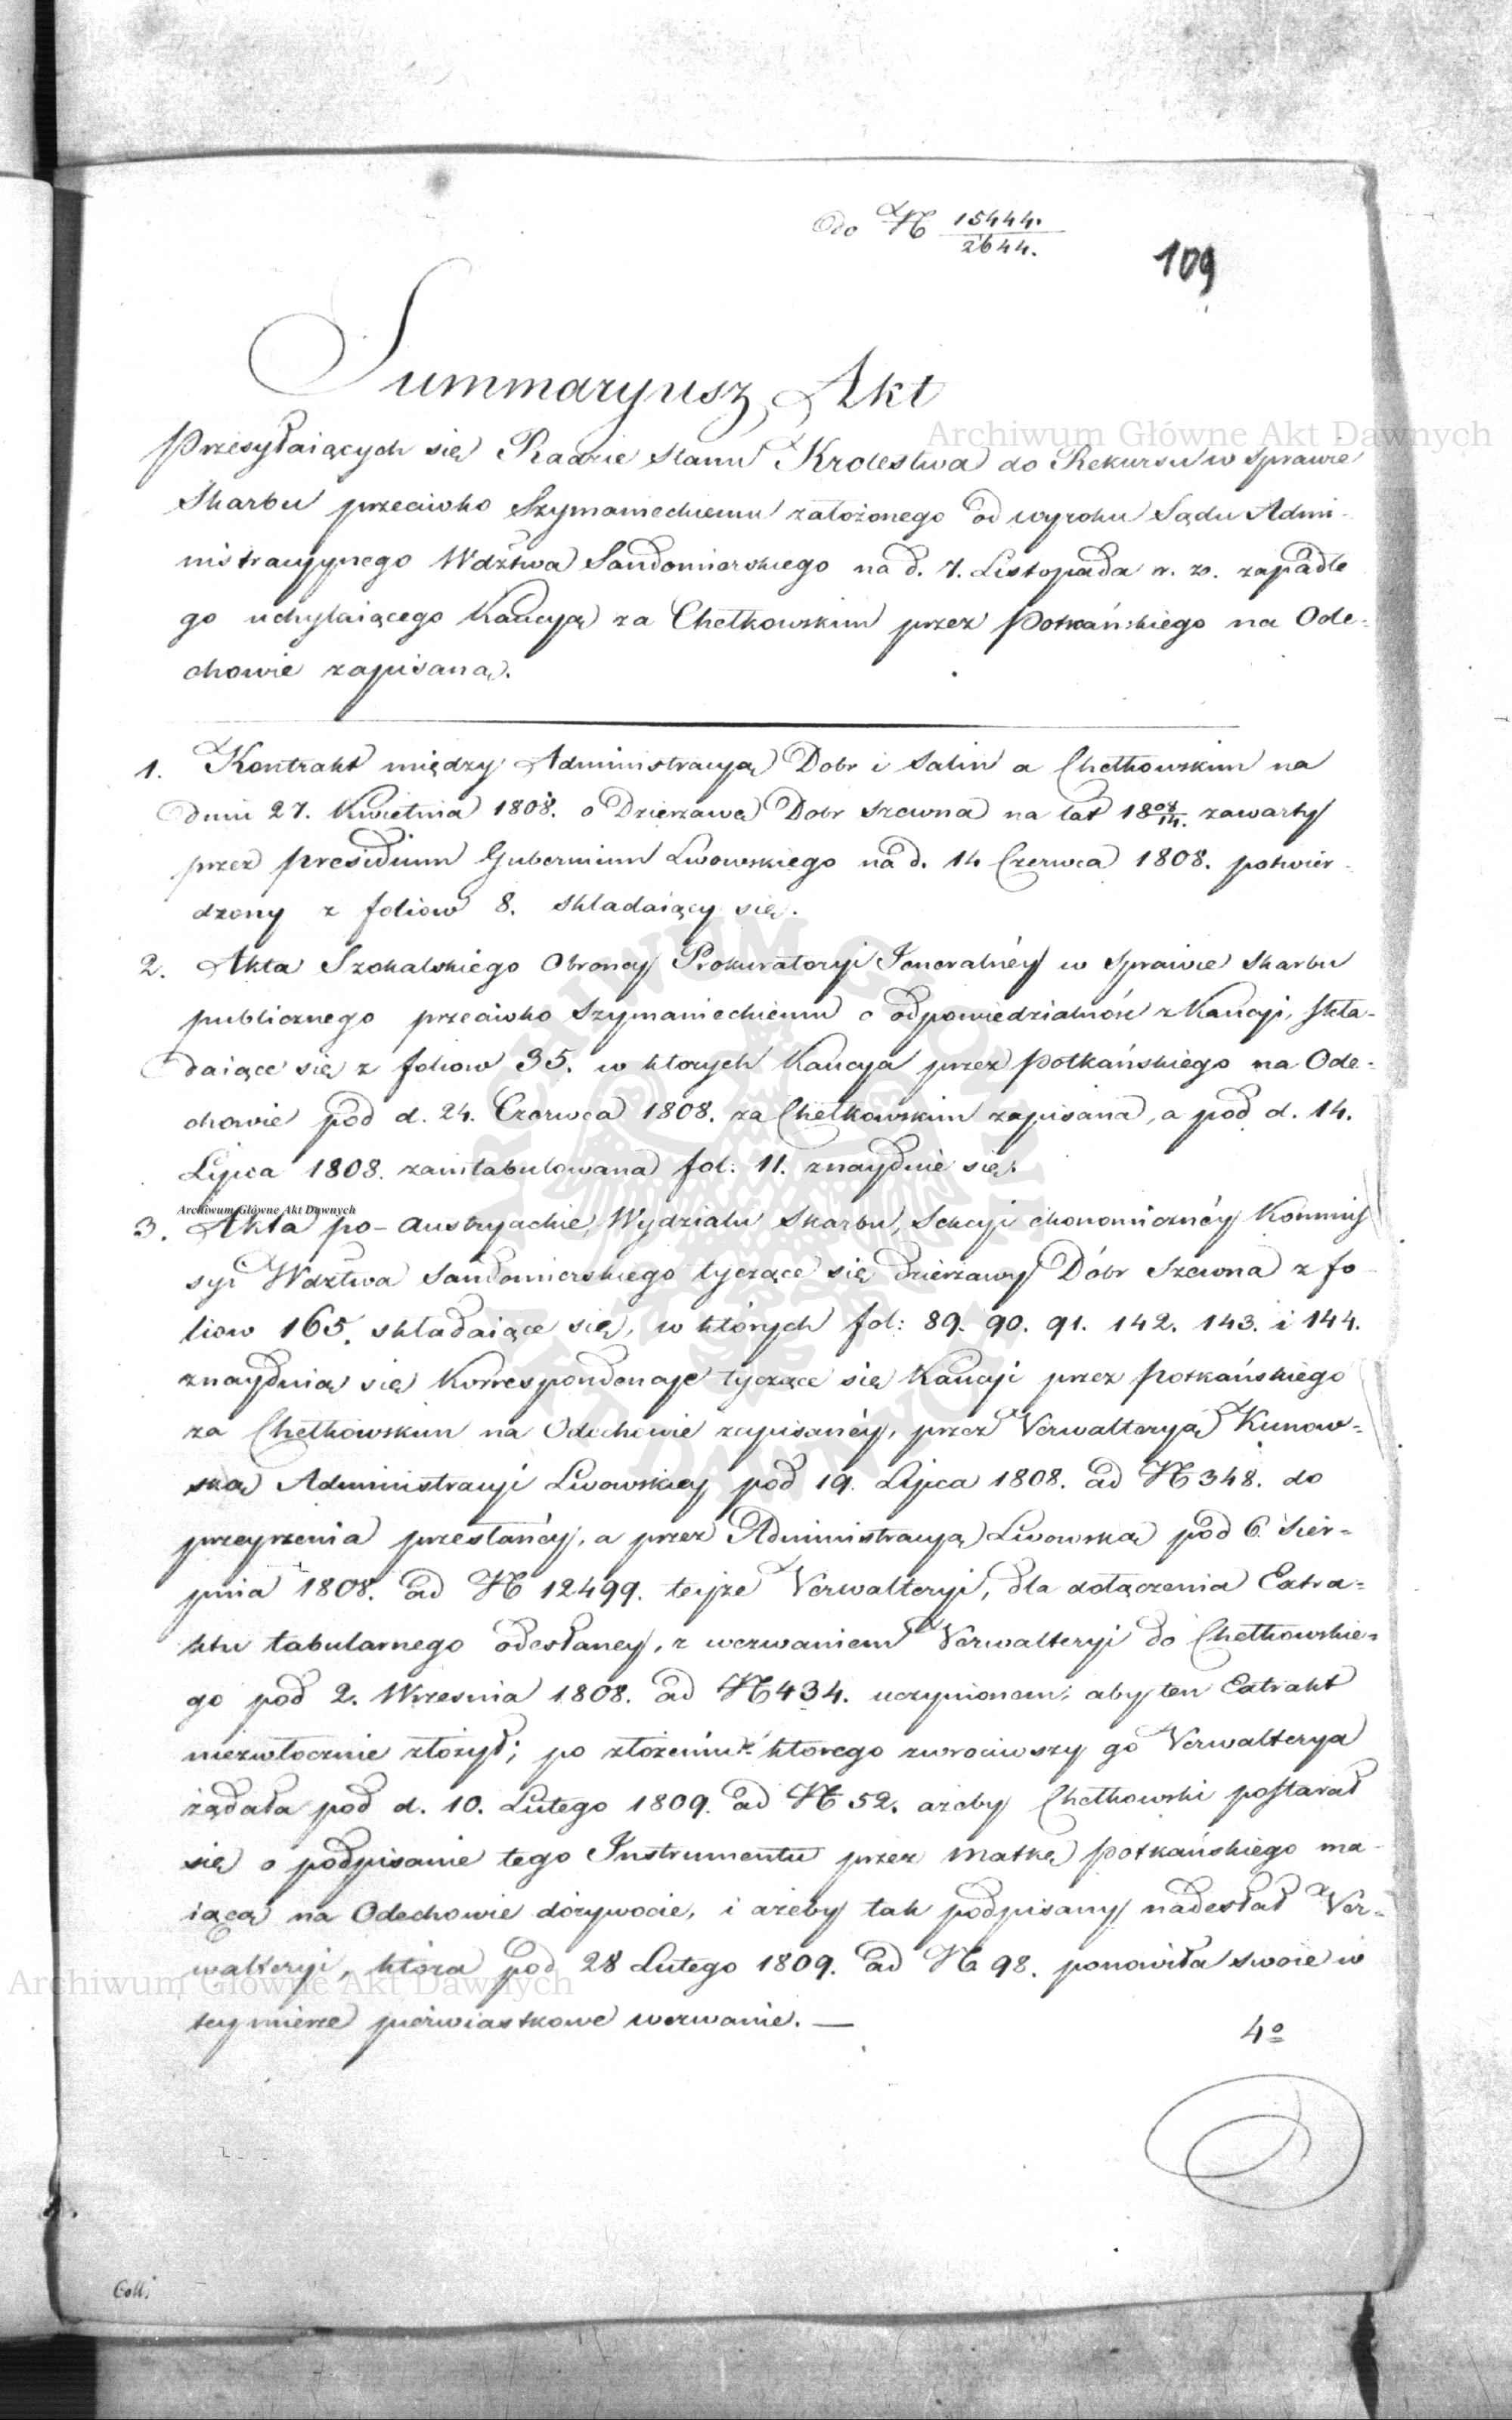 do N 15444.
2644.
109
Summaryusz Akt
Przesyłaiących się Radzie Stanu Krolestwa do Rekursu w Sprawie
Skarbu przeciwko Szymanieckiemu założonego od wyroku Sądu Admi-
nistracyynego Wdztwa Sandomierskiego na d. 7. Listopada r. z. zapadłe
go uchylaiącego Kaucyą za Chełkowskim przez Potkańskiego na Ode-
chowie zapisaną.
1. Kontrakt między Administracyą Dobr i Salin a Chełkowskim na
dniu 27. Kwietnia 1808. o Dzierzawę Dobr Szewna na lat 1808/14. zawarty
przez Presidium Gubernium Lwowskiego na d. 14 Czerwca 1808. potwier-
dzony z foliow 8. składaiący się.
2. Akta Szokalskiego Obroncy Prokuratoryi Jeneralnéy w Sprawie Skarbu
publicznego przeciwko Szymanieckiemu o odpowiedzialność z Kaucyi, skła-
daiące się z foliow 35. w ktorych Kaucya przez Potkańskiego na Ode-
chowie pod d. 24. Czerwca 1808. za Chełkowskim zapisana, a pod d. 14.
Lipca 1808. zaintabulowana fol: 11. znayduie się.
3. Akta po-austryackie, Wydziału Skarbu, Sekcyi ekonomicznéy Kommis
syi Wdztwa Sandomierskiego tyczące się dzierzawy Dóbr Szewna z fo
liow 165. składaiące się, w których fol: 89. 90. 91. 142. 143. i 144.
znayduią się Korrespondencye tyczące się Kaucyi przez Potkańskiego
za Chełkowskim na Odechowie zapisanéy, przez Verwalteryą Kunow-
ską Administracyi Lwowskiey pod 19. Lipca 1808. ad N 348. do
przeyrzenia przesłanéy, a przez Administracyą Lwowską pod 6. Sier-
pnia 1808. ad N 12499. teyże Verwalteryi, dla dołączenia Extra-
ktu tabularnego odesłaney, z wezwaniem Verwalteryi do Chełkowskie-
go pod 2. Wrzesnia 1808. ad N 434. uczynionem, aby ten Extrakt
niezwłocznie złożył; po złożeniu ktorego zwrociwszy go Verwalterya
żądała pod d. 10. Lutego 1809. ad N 52. ażeby Chełkowski postarał
się o podpisanie tego Instrumentu przez matkę Potkańskiego ma-
iącą na Odechowie dożywocie, i ażeby tak podpisany nadesłał Ver-
walteryi, która pod 28 Lutego 1809. ad N 98. ponowiła swoie w
tey mierze pierwiastkowe wezwanie. —
4o
Coll.
Archiwum Główne Akt Dawnych
Archiwum Główne Akt Dawnych
Archiwum Główne Akt Dawnych
ARCHIWUM GŁÓWNE AKT DAWNYCH